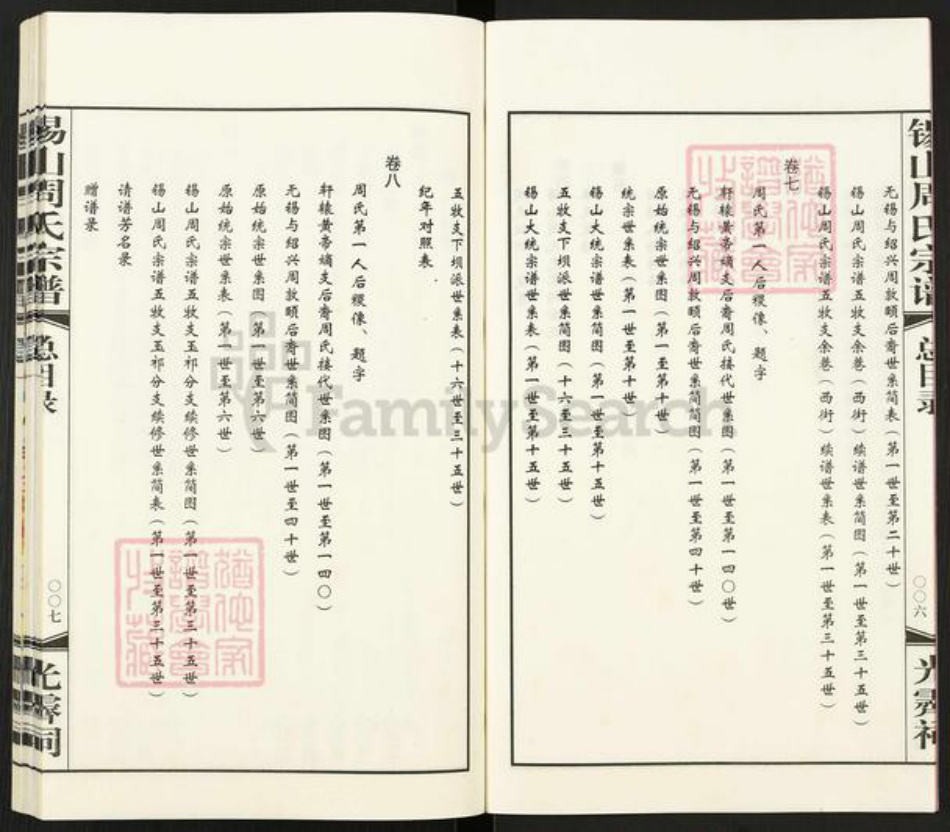 锡山周氏宗谱
总目录
〇〇六
光霁祠
无锡与绍兴周敦颐后裔世系简表（第一世至第二十世）
锡山周氏宗谱五牧支余巷（西街）续谱世系简图（第一世至第三十五世）
锡山周氏宗谱五牧支余巷（西街）续谱世系表（第一世至第三十五世）
卷七
周氏第一人后稷像、题字
轩辕黄帝嫡支后裔周氏接代世系图（第一世至第一四〇世）
无锡与绍兴周敦颐后裔世系简图（第一世至第四十世）
原始统宗世系图（第一至第十世）
统宗世系表（第一世至第十世）
锡山大统宗谱世系简图（第一世至第十五世）
五牧支下坝派世系简图（十六至三十五世）
锡山大统宗谱世系表（第一世至第十五世）
五牧支下坝派世系表（十六世至三十五世）
纪年对照表
卷八
周氏第一人后稷像、题字
轩辕黄帝嫡支后裔周氏接代世系图（第一世至第一四〇）
无锡与绍兴周敦颐后裔世系简图（第一世至四十世）
原始统宗世系图（第一世至第六世）
原始统宗世系表（第一世至第六世）
锡山周氏宗谱五牧支玉祁分支续修世系简图（第一世至第三十五世）
锡山周氏宗谱五牧支玉祁分支续修世系简表（第一世至第三十五世）
请谱芳名录
赠谱录
锡山周氏宗谱
总目录
〇〇七
光霁祠
FamilySearch